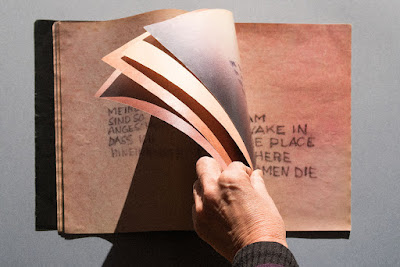 MEINE
SIND SO
ANGES
DASS
AM
WAKE IN
E PLACE
HERE
MEN DIE